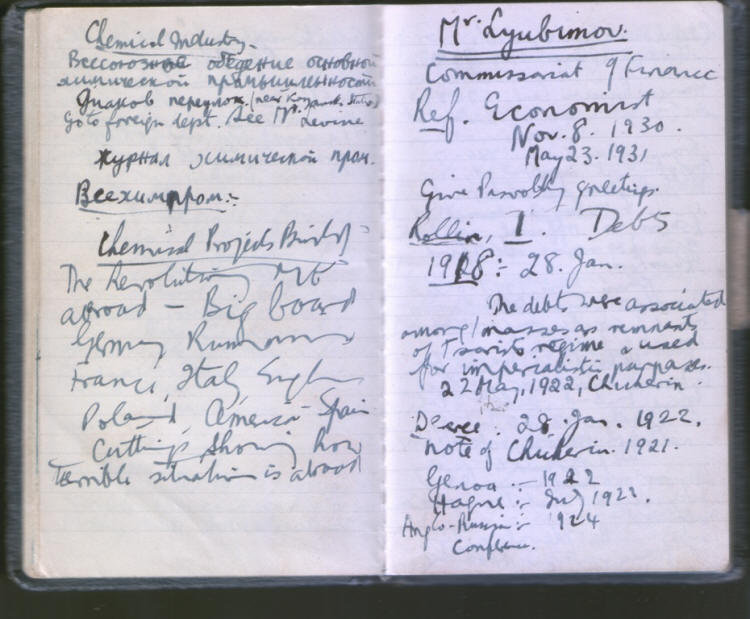 Chemical Industry.
Всесоюзное объедение основной
химической промышленности
Знаков переулок. (near
Go to foreign dept. See Mr. Levine
журнал химической пром.
Всехимпром:-
Chemical Projects
The Revolution
abroad - Big board
Germany
France, Italy, England
Poland, America Spain
Cuttings showing how
terrible situation is abroad
Mr. Lyubimov.
Commissariat of Finance
Ref. Economist
Nov. 8. 1930.
May 23. 1931
Give greetings.
Rollin, I. Debts
1918:- 28. Jan.
The debts were associated
among masses as remnants
of Tsarist regime & used
for imperialistic purposes.
22 May, 1922, Chicherin.
Decree. 28. Jan. 1922.
note of Chicherin. 1921.
Genoa:- 1922
Hague:- July 1922.
Anglo-Russian:- 1924
Conference.